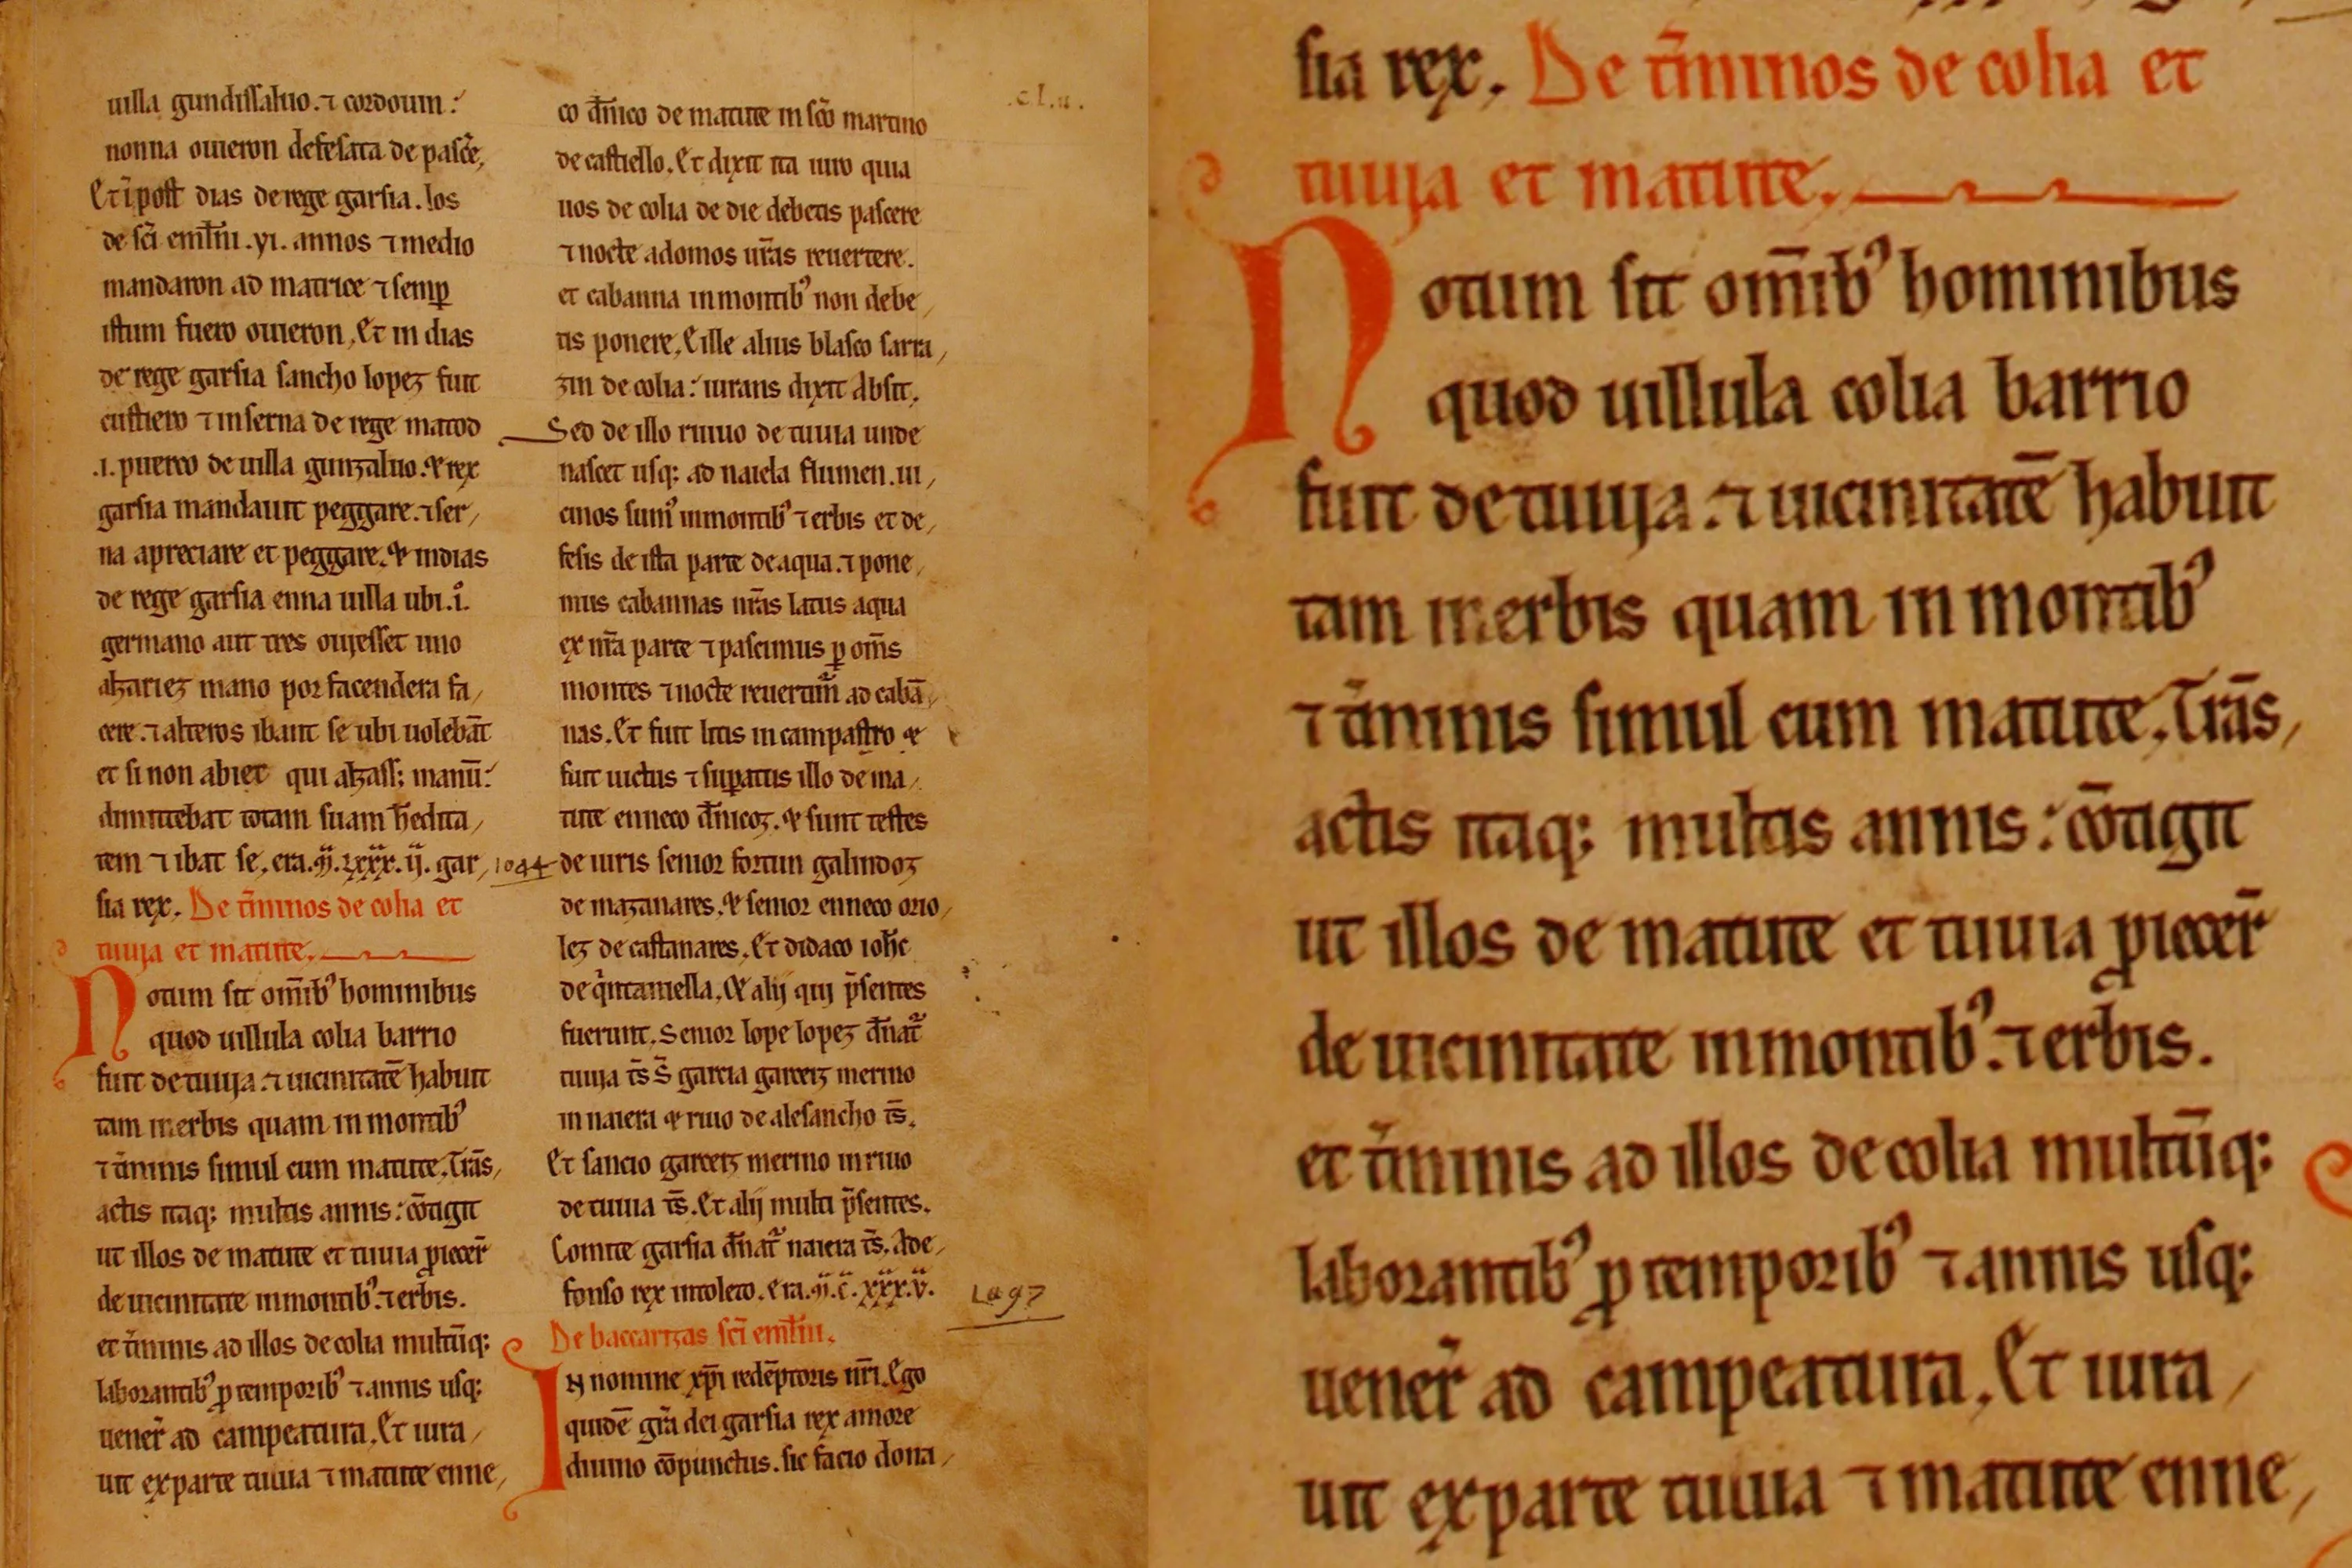 uilla gundissaluo. ⁊ cordouin:
nonna ouieron defesata de pasc̃e,
Et ĩ post dias de rege garsia. los
de sc̃i emil̃ni .vi. annos ⁊ medio
mandaron ad matrice ⁊ semꝑ
istum fuero ouieron, Et in dias
de rege garsia sancho lopez fuit
custiero ⁊ in serna de rege matod
.i. puerco de uilla gunzaluo. & rex
garsia mandauit peggare. ⁊ ser,
na apreciare et peggare, & in dias
de rege garsia enna uilla ubi .i.
germano aut tres ouiesset uno
alzariez mano por facendera fa,
cere. ⁊ alteros ibant se ubi uolebãt
et si non abiet qui alzass; manũ:
dimittebat totam suam h̃edita,
tem ⁊ ibat se, era. gar, 1044
sia rex. De t̃minos de colia et
tuuia et matute.
Notum sit om̃ibꝰ hominibus
quod uillula colia barrio
fuit de tuuia. ⁊ uicinitatẽ habuit
tam in erbis quam in montibꝰ
⁊ t̃minis simul cum matute, Trãs,
actis itaq; multis annis: cõtigit
ut illos de matute et tuuia ꝓiecer̃
de uicinitate in montibꝰ. ⁊ erbis.
et t̃minis ad illos de colia multũq;
laborantibꝰ ꝑ temporibꝰ ⁊ annis usq;
uener̃ ad campeatura, Et iura,
uit ex parte tuuia ⁊ matute enne,
.cl.ii.
co dñico de matute in sc̃o martino
de castiello. Et dixit ita iuro quia
uos de colia de die debetis pascere
⁊ nocte ad domos ur̃as reuertere.
et cabanna in montibꝰ non debe,
tis ponere, E ille alius blasco sarra,
zin de colia: iurans dixit absit,
Sed de illo riuuo de tuuia unde
nascet usq; ad naiela flumen. ui,
cinos sumꝰ in montibꝰ ⁊ erbis et de,
fesis de ista parte de aqua. ⁊ pone,
mus cabannas nr̃as latus aqua
ex nr̃a parte ⁊ pascimus ꝑ om̃s
montes ⁊ nocte reuertim̃ ad cabã,
nas. Et fuit litis in campastro &
fuit uictus ⁊ suꝑatus illo de ma,
tute enneco dñicoz. & sunt testes
de iuris senior fortun galindoz
de mazanares, & senior enneco orio,
lez de castanares, Et didaco ioh̃c
de q̃intaniella, & alij qui p̃sentes
fuerunt, Senior lope lopez dñat̃
tuuia ts̃ S̃ garcia garceiz merino
in naiera & riuo de alesancho ts̃.
Et sancio garceiz merino in riuo
de tuuia ts̃. Et alij multi p̃sentes.
Comite garsia dñat̃ naiera ts̃. Ade,
fonso rex in toleto. era. m̃. c̃. xxx. v. 1097
De baccarizas sc̃i emil̃ni.
IN nomine xp̃i redẽptoris nr̃i. Ego
quidẽ gr̃a dei garsia rex amore
diuino cõpunctus. sic facio dona,
sia rex. De t̃minos de colia et
tuuia et matute.
Notum sit om̃ibꝰ hominibus
quod uillula colia barrio
fuit de tuuia. ⁊ uicinitatẽ habuit
tam in erbis quam in montibꝰ
⁊ t̃minis simul cum matute, Trãs,
actis itaq; multis annis: cõtigit
ut illos de matute et tuuia ꝓiecer̃
de uicinitate in montibꝰ. ⁊ erbis.
et t̃minis ad illos de colia multũq;
laborantibꝰ ꝑ temporibꝰ ⁊ annis usq;
uener̃ ad campeatura, Et iura,
uit ex parte tuuia ⁊ matute enne,